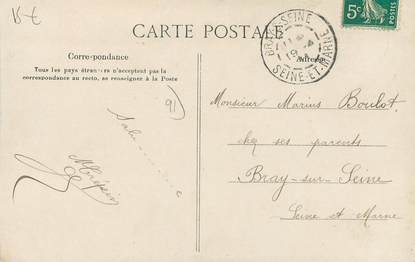 15 €
CARTE POSTALE
Corre·pondance
Tous les pays étrangers n'acceptent pas la
correspondance au recto, se renseigner à la Poste
Adresse
BRAY-S-SEINE
SEINE-ET-MARNE
5c
91
Monsieur Marius Boulot
chez ses parents
Bray-sur-Seine
Seine et Marne